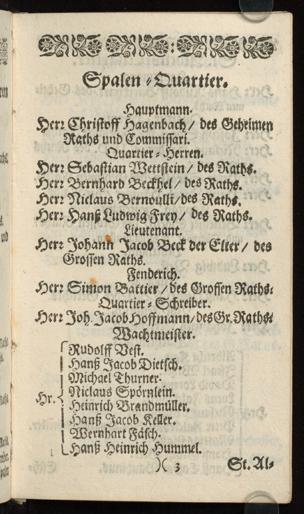 Spalen-Quartier.
Hauptmann.
Herr Christoff Hagenbach / des Geheimen
Raths und Commissari.
Quartier-Herren.
Herr Sebastian Wettstein / des Raths.
Herr Bernhard Beckhel / des Raths.
Herr Niclaus Bernoulli / des Raths.
Herr Hanß Ludwig Frey / des Raths.
Lieutenant.
Herr Johann Jacob Beck der Elter / des
Grossen Raths.
Fenderich.
Herr Simon Battier / des Grossen Raths.
Quartier-Schreiber.
Herr Joh. Jacob Hoffmann / des Gr. Raths.
Wachtmeister.
Rudolff Vest.
Hanß Jacob Dietsch.
Michael Thurner.
Hr. Niclaus Spörnlein.
Heinrich Brandmüller.
Hanß Jacob Keller.
Wernhart Fäsch.
Hanß Heinrich Hummel.
)( 3 St. Al-